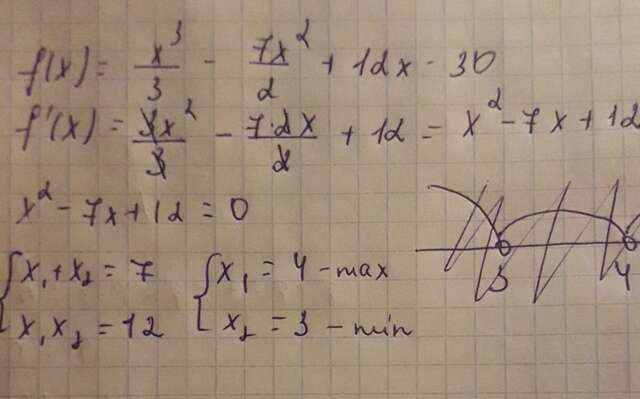 f(x) = x³/3 - 7x²/2 + 12x - 30
f'(x) = 3x²/3 - 7·2x/2 + 12 = x² - 7x + 12
x² - 7x + 12 = 0
{x₁ + x₂ = 7 {x₁ = 4 - max
{x₁x₂ = 12 {x₂ = 3 - min
3 4